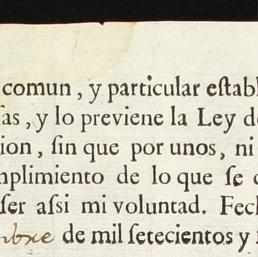 comun, y particular establ
sas, y lo previene la Ley de
ion, sin que por unos, ni
mplimiento de lo que se
ser assi mi voluntad. Fec
bre de mil setecientos y